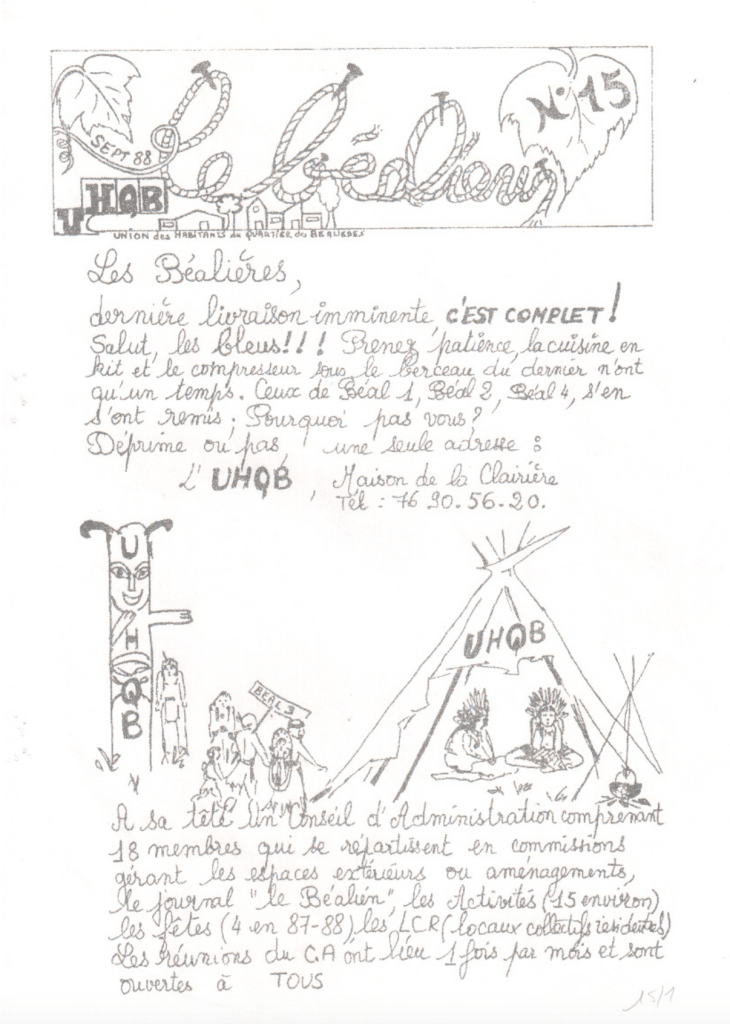 SEPT 88
Le béalien
N° 15
UHQB
UNION des HABITANTS du QUARTIER des BEALIERES
Les Béalières,
dernière livraison imminente, C'EST COMPLET!
Salut, les bleus!!! Prenez patience, la cuisine en
kit et le compresseur sous le berceau du dernier n'ont
qu'un temps. Ceux de Béal 1, Béal 2, Béal 4, s'en
s'ont remis ; Pourquoi pas vous?
Déprime ou pas, une seule adresse :
L'UHQB, Maison de la Clairière
Tél : 76.90.56.20.
UHQB
BEAL 3
UHQB
A sa tête un Conseil d'Administration comprenant
18 membres qui se répartissent en commissions
gérant les espaces extérieurs ou aménagements,
le journal "le Béalien", les Activités (15 environ)
les fêtes (4 en 87-88), les LCR (locaux collectifs résidentiels)
Les réunions du CA ont lieu 1 fois par mois et sont
ouvertes à TOUS
15/1